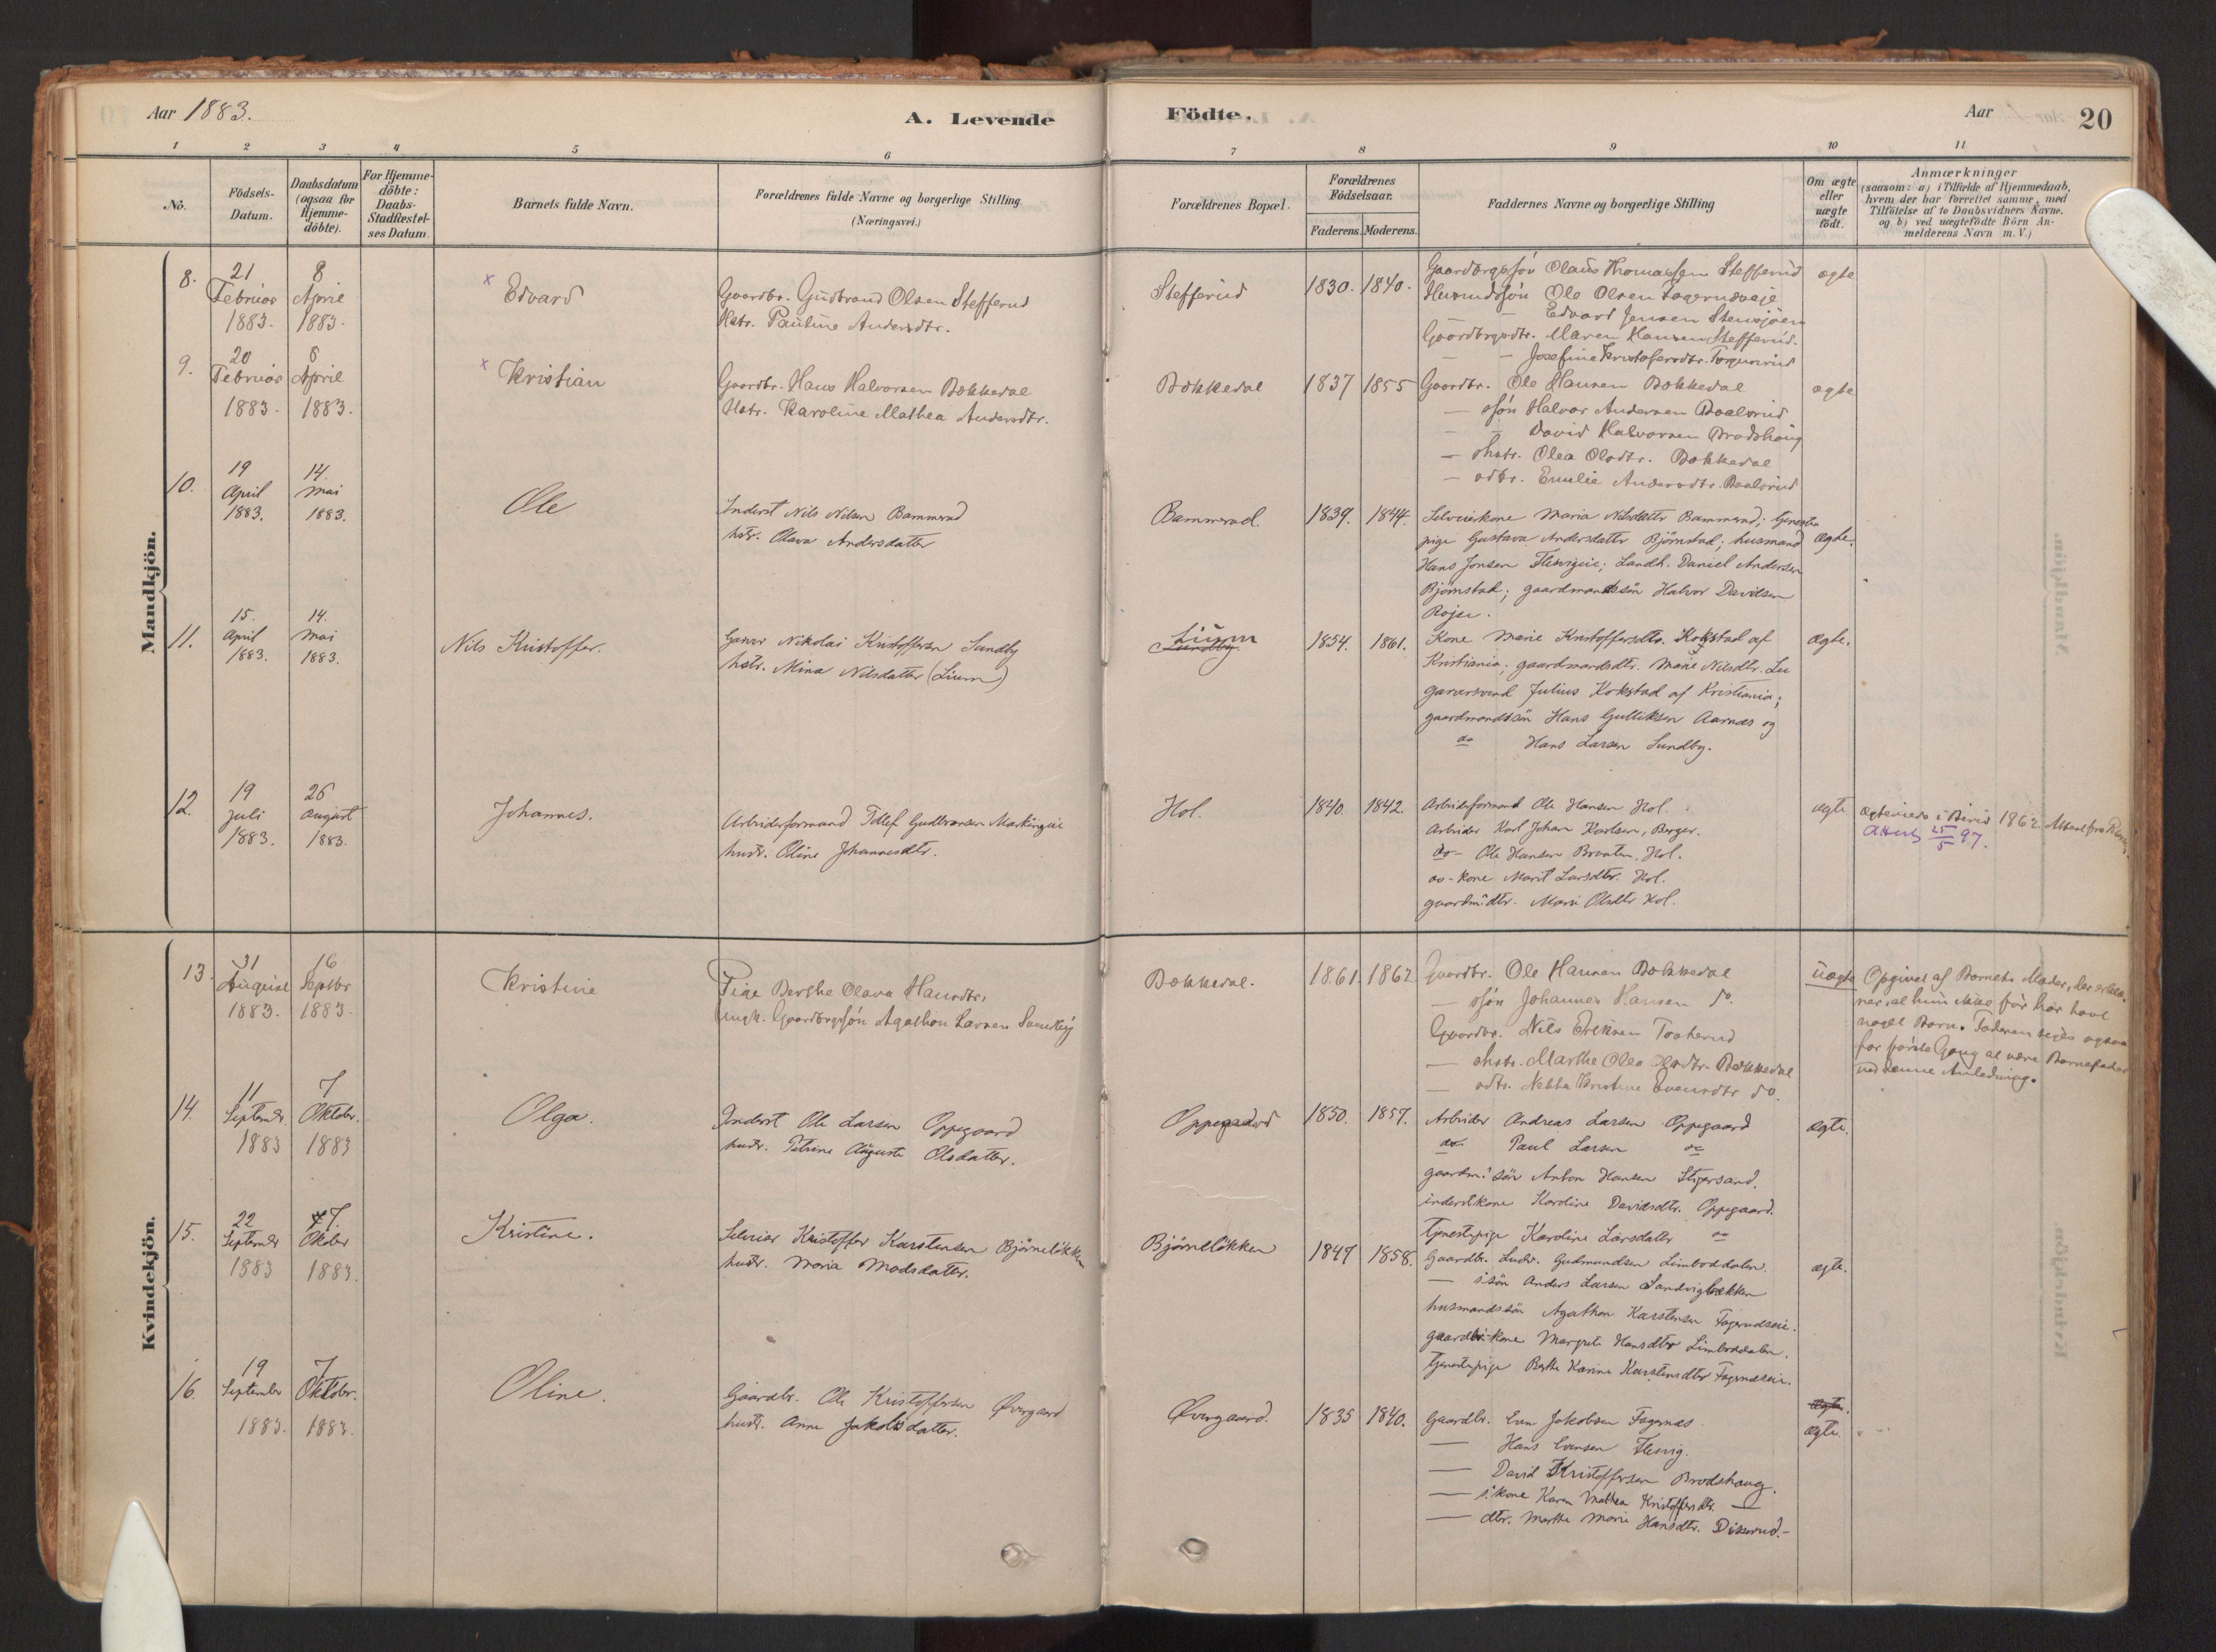 Aar 1883.
A. Levende
Födte.
Aar
20
1 2 3 4 5 6 7 8 9 10 11
No.
Födsels-
Datum.
Daabsdatum
(ogsaa for
Hjemme-
döbte).
For Hjemme-
döbte:
Daabs-
Stadfæstel-
ses Datum.
Barnets fulde Navn.
Forældrenes fulde Navne og borgerlige Stilling.
(Næringsvei.)
Forældrenes Bopæl.
Forældrenes
Födselsaar.
Faderens. Moderens.
Faddernes Navne og borgerlige Stilling
Om ægte
eller
uægte
födt.
Anmærkninger
(saasom: a) i Tilfælde af Hjemmedaab,
hvem der har forrettet samme, med
Tilföielse af to Daabsvidners Navne.
og b) ved uægtefödte Börn An-
melderens Navn m. V.)
Mandkjön.
8.
21
Februar
1883.
8
April
1883.
x Edvard
Gaardbr. Gudbrand Olsen Stefferud
Hstr. Pauline Andersdtr.
Stefferud
1830. 1840.
Gaardbrgssön Olaus Thomassen Stefferud
Husmdssön Ole Olsen Fagerudseje
Edvard Jensen Stensjöen
Gaardbrgsdtr. Maren Hansen Stefferud.
Josefine Kristofersdtr.
ægte
9.
20
Februar
1883.
8
April
1883.
x Kristian
Gaardbr. Hans Halvorsen Bækkedal
Hstr. Karoline Mathea Andersdtr.
Bækkedal
1837 1855
Gaardbr. Ole Hansen Bækkedal
— ssön Halvor Andersen
— David Halvorsen Brodshaug
— shstr. Olea Olsdtr. Bækkedal
— sdtr. Emilie Andersdtr.
ægte
10.
19
April
1883.
14.
Mai
1883.
Ole
Inderst Nils Nilsen Bammerud
hstr. Olava Andersdatter
Bammerud.
1839. 1844.
Selveierkone Maria Nilsdatter Bammerud; tjeneste
pige Gustava Andersdatter Björnstad; husmand
Hans Jonsen; Landh. Daniel Andersen
Björnstad; gaardmandssön Halvor Davidsen
Rojse.
Ægte.
11.
15.
April
1883.
14.
Mai
1883.
Nils Kristoffer.
Garver Nikolai Kristoffersen Sundby
hstr. Mina Nilsdatter (Lium)
Lium
Sundby
1854. 1861.
Kone Marie Kristoffersdtr. Kokstad af
Kristiania; gaardmandsdtr. Marie Nilsdtr.
garversvend Julius Kokstad af Kristiania;
gaardmandssön Hans Gulliksen Aarnæs og
do Hans Larsen Sundby.
Ægte.
12.
19
Juli
1883.
26
August
1883.
Johannes.
Arbeidsformand Gudbransen
hustr. Oline Johannesdtr.
Hol.
1840. 1842.
Arbeidsformand Ole Hansen Hol.
Arbeider Karl Johan Karlsen, Berger.
do- Ole Hansen Braaten, Hol.
do- kone Marit Larsdtr. Hol.
gaardm.dtr. Mari Olsdtr Hol.
ægte
i Biri 1862.
Attest 25/5 97.
Kvindekjön.
13.
31
August
1883.
16
Septbr
1883.
Kristine
Pige Berthe Olava Hansdtr.
Ungk. Gaardbrgssön Agathon Larsen
Bækkedal.
1861. 1862
Gaardbr. Ole Hansen Bækkedal
— ssön Johannes Hansen do.
Gaardbr. Nils Eriksen
— shstr. Marthe Olea Olsdtr. Bækkedal
— sdtr. Kristine Evensdtr do.
uægte
Opgivet af Barnets Moder, der erklæ-
rer, at hun ikke för har havt
noget Barn. Faderen siges ogsaa
for förste Gang at være Barnefader
ved denne Anledning.
14.
11
September
1883
7
Oktober.
1883
Olga.
Inderst Ole Larsen Oppegaard
hustr. Petrine Auguste Olsdatter.
Oppegaard
1850. 1857.
Arbeider Andreas Larsen Oppegaard
do Paul Larsen do
gaardm.sön Anton Hansen Stegersand.
inderstkone Karoline Davidsdtr. Oppegaard.
tjenestepige Karoline Larsdatter do
ægte.
15.
22
September
1883
7.
Oktober
1883.
Kristine.
Selveier Kristoffer Karstensen Björnelökken
hustr. Maria Madsdatter.
Björnelökken
1847 1858.
Gaardbr. Ludv. Gudmundsen Limboddalen.
— s.sön Anders Larsen Sandvigbækken
husmandssön Agathon Karstensen Fagerudseie.
gaardbr.kone Margrete Hansdtr Limboddalen.
tjenestepige Berthe Karine Karstensdtr Fagerudseie.
ægte.
16.
19
September
1883.
7
Oktober.
1883.
Oline.
Gaardbr. Ole Kristoffersen Övergaard
hustr. Anne Jakobsdatter.
Övergaard.
1835 1840.
Gaardbr. Even Jakobsen Fagernæs.
— Hans Evensen
— David Kristoffersen Brodshaug.
— s.kone Karen Mathea Kristoffersdtr. —
— dtr. Marthe Marie Hansdtr. Diserud.-
ægte.
ægte.